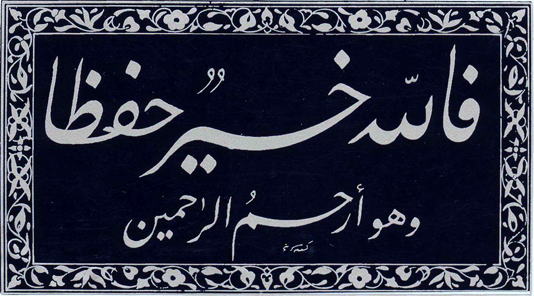 فالله خيرٌ حفظا
وهو أرحمُ الرٰحمين